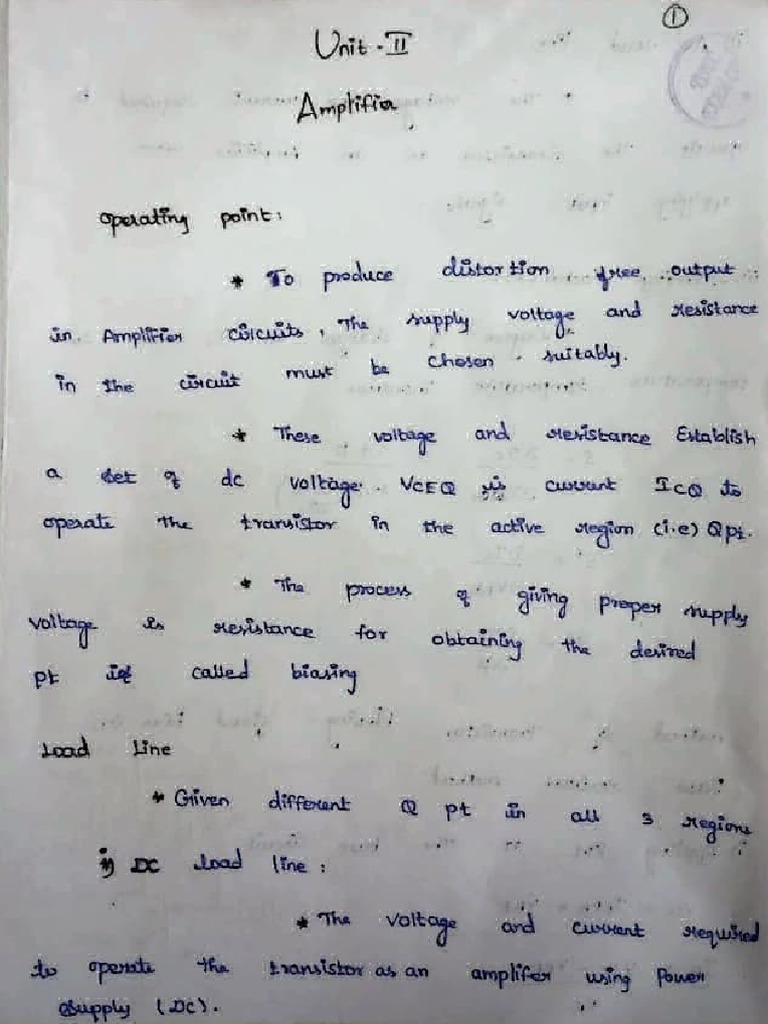 ①
Unit - II
Amplifier
operating point:
* To produce distortion free output
in Amplifier circuits, The supply voltage and resistance
in the circuit must be chosen suitably.
* These voltage and resistance Establish
a set of dc voltage VCEQ & current ICQ to
operate the transistor in the active region (i.e) Q pt.
* The process of giving proper supply
voltage & resistance for obtaining the desired
pt is called biasing
Load Line
* Given different Q pt in all 3 regions
i) DC Load line :
* The voltage and current required
to operate the transistor as an amplifer using Power
supply (DC).